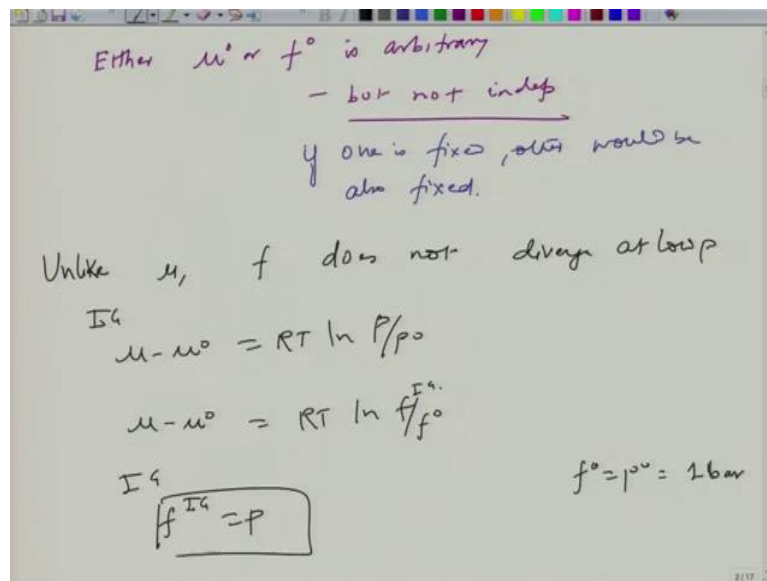 Either μ° or f° is arbitrary
- but not indep
If one is fixed, other would be
also fixed.
Unlike μ, f does not diverge at low p
IG
μ - μ° = RT ln P/p°
μ - μ° = RT ln f/f° IG.
IG
f^IG = P
f° = p° = 1 bar
2/17